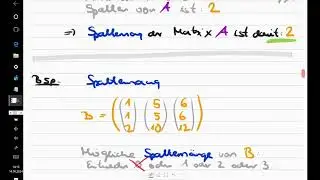 Spalten von A ist: 2
⇒ Spaltenrang der Matrix A ist damit: 2
Bsp: Spaltenrang
B = ((1 1 2) (5 5 10) (6 6 12))
Mögliche Spaltenränge von B:
Entweder 0 oder 1 oder 2 oder 3